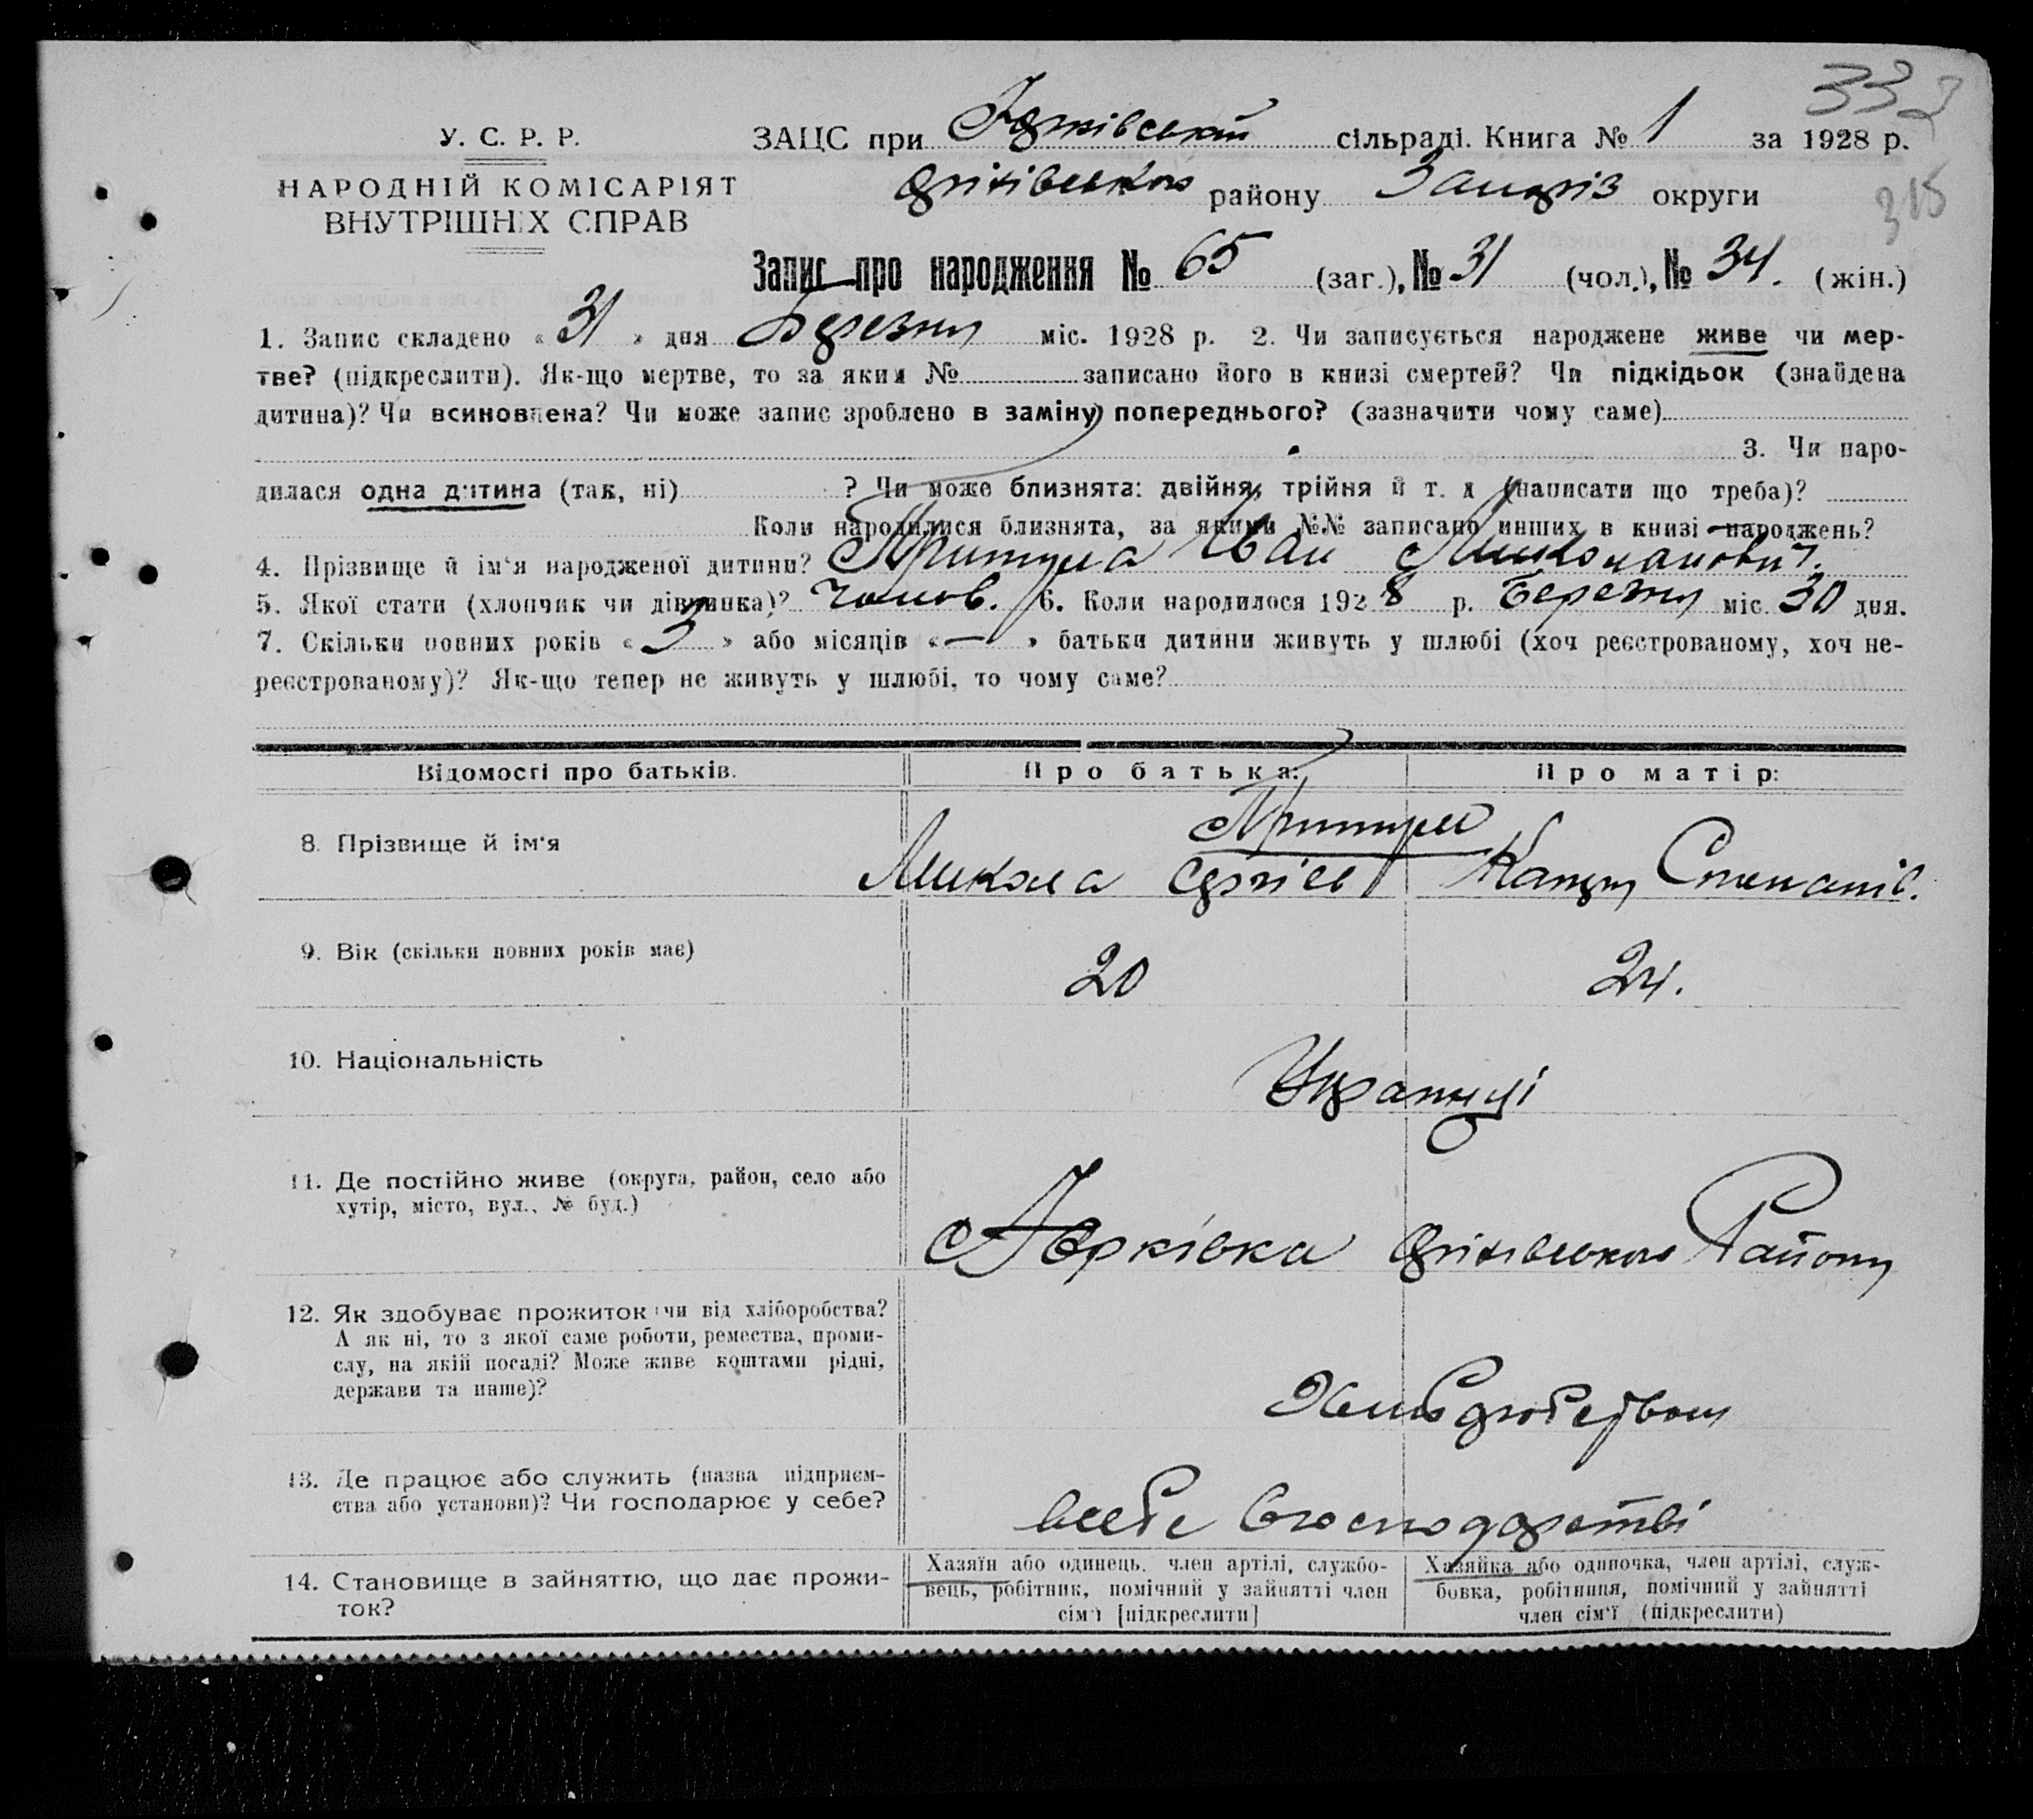 332
У. С. Р. Р.
НАРОДНІЙ КОМІСАРІЯТ
ВНУТРІШНІХ СПРАВ
315
ЗАЦС при сільраді. Книга № 1 за 1928 р.
району Запоріз округи
Запис про народження № 65 (заг.), № 31 (чол.), № 34. (жін.)
1. Запис складено « 31 » дня Березня міс. 1928 р. 2. Чи записується народжене живе чи мер-
тве? (підкреслити). Як-що мертве, то за яким № записано його в книзі смертей? Чи підкідьок (знайдена
дитина)? Чи всиновлена? Чи може запис зроблено в заміну попереднього? (зазначити чому саме)
3. Чи наро-
дилася одна дитина (так, ні) ? Чи може близнята: двійня, трійня й т. д (написати що треба)?
Коли народилися близнята, за якими №№ записано инших в книзі народжень?
4. Прізвище й ім‘я народженої дитини? Притула Іван Миколайович.
5. Якої стати (хлопчик чи дівчинка)? Чолов. 6. Коли народилося 1928 р. Березня міс. 30 дня.
7. Скільки повних років « 3 » або місяців « — » батьки дитини живуть у шлюбі (хоч реєстрованому, хоч не-
реєстрованому)? Як-що тепер не живуть у шлюбі, то чому саме?
Відомості про батьків. Про батька: Про матір:
Притули
8. Прізвище й ім‘я Микола Сергієв Степанів.
9. Вік (скільки повних років має) 20 24.
10. Національність Українці
11. Де постійно живе (округа, район, село або
хутір, місто, вул., № буд.)
Району
12. Як здобуває прожиток чи від хліборобства?
А як ні, то з якої саме роботи, ремества, проми-
слу, на якій посаді? Може живе коштами рідні,
держави та инше)?
Хліборобством
13. Де працює або служить (назва підприєм-
ства або установи)? Чи господарює у себе?
в себе в господарстві
14. Становище в зайняттю, що дає прожи-
ток?
Хазяїн або одинець, член артілі, службо-
вець, робітник, помічний у зайнятті член
сім‘ї [підкреслити]
Хазяйка або одиночка, член артілі, служ-
бовка, робітниця, помічний у зайнятті
член сім‘ї (підкреслити)